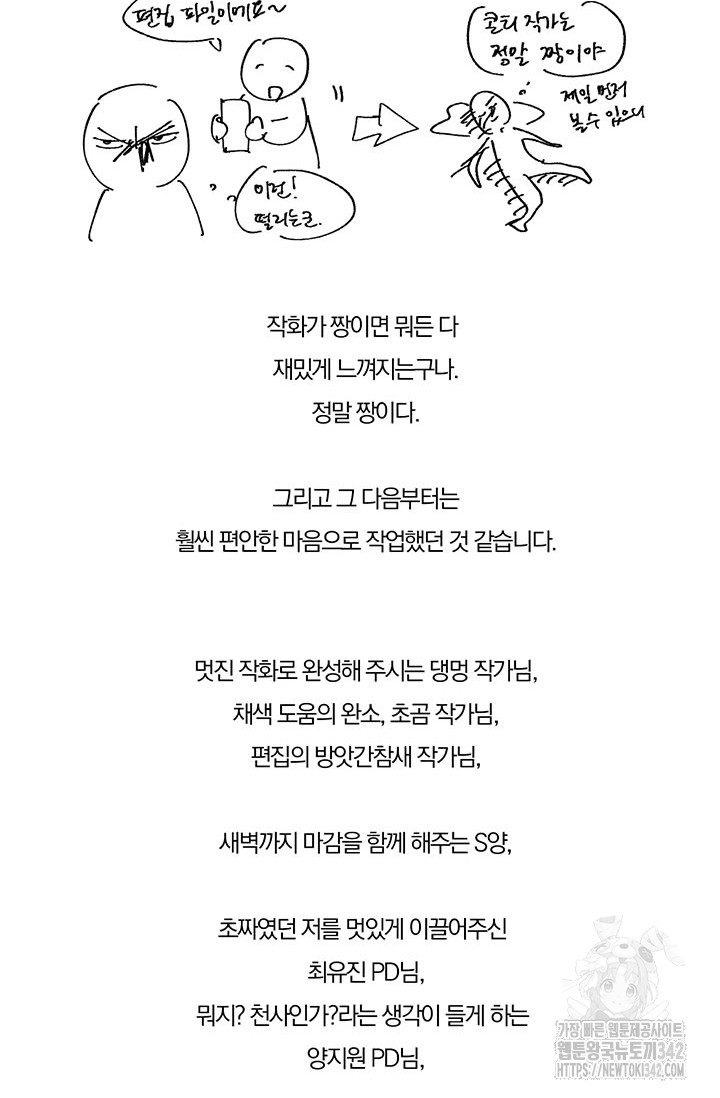 편집 파일이에요~
콘티 작가는
정말 짱이야
제일 먼저
볼 수 있으니
이런!
떨리는군.
작화가 짱이면 뭐든 다
재밌게 느껴지는구나.
정말 짱이다.
그리고 그 다음부터는
훨씬 편안한 마음으로 작업했던 것 같습니다.
멋진 작화로 완성해 주시는 댕멍 작가님,
채색 도움의 완소, 초곰 작가님,
편집의 방앗간참새 작가님,
새벽까지 마감을 함께 해주는 S양,
초짜였던 저를 멋있게 이끌어주신
최유진 PD님,
뭐지? 천사인가?라는 생각이 들게 하는
양지원 PD님,
가장 빠른 웹툰제공사이트
웹툰왕국뉴토끼342
HTTPS://NEWTOKI342.COM